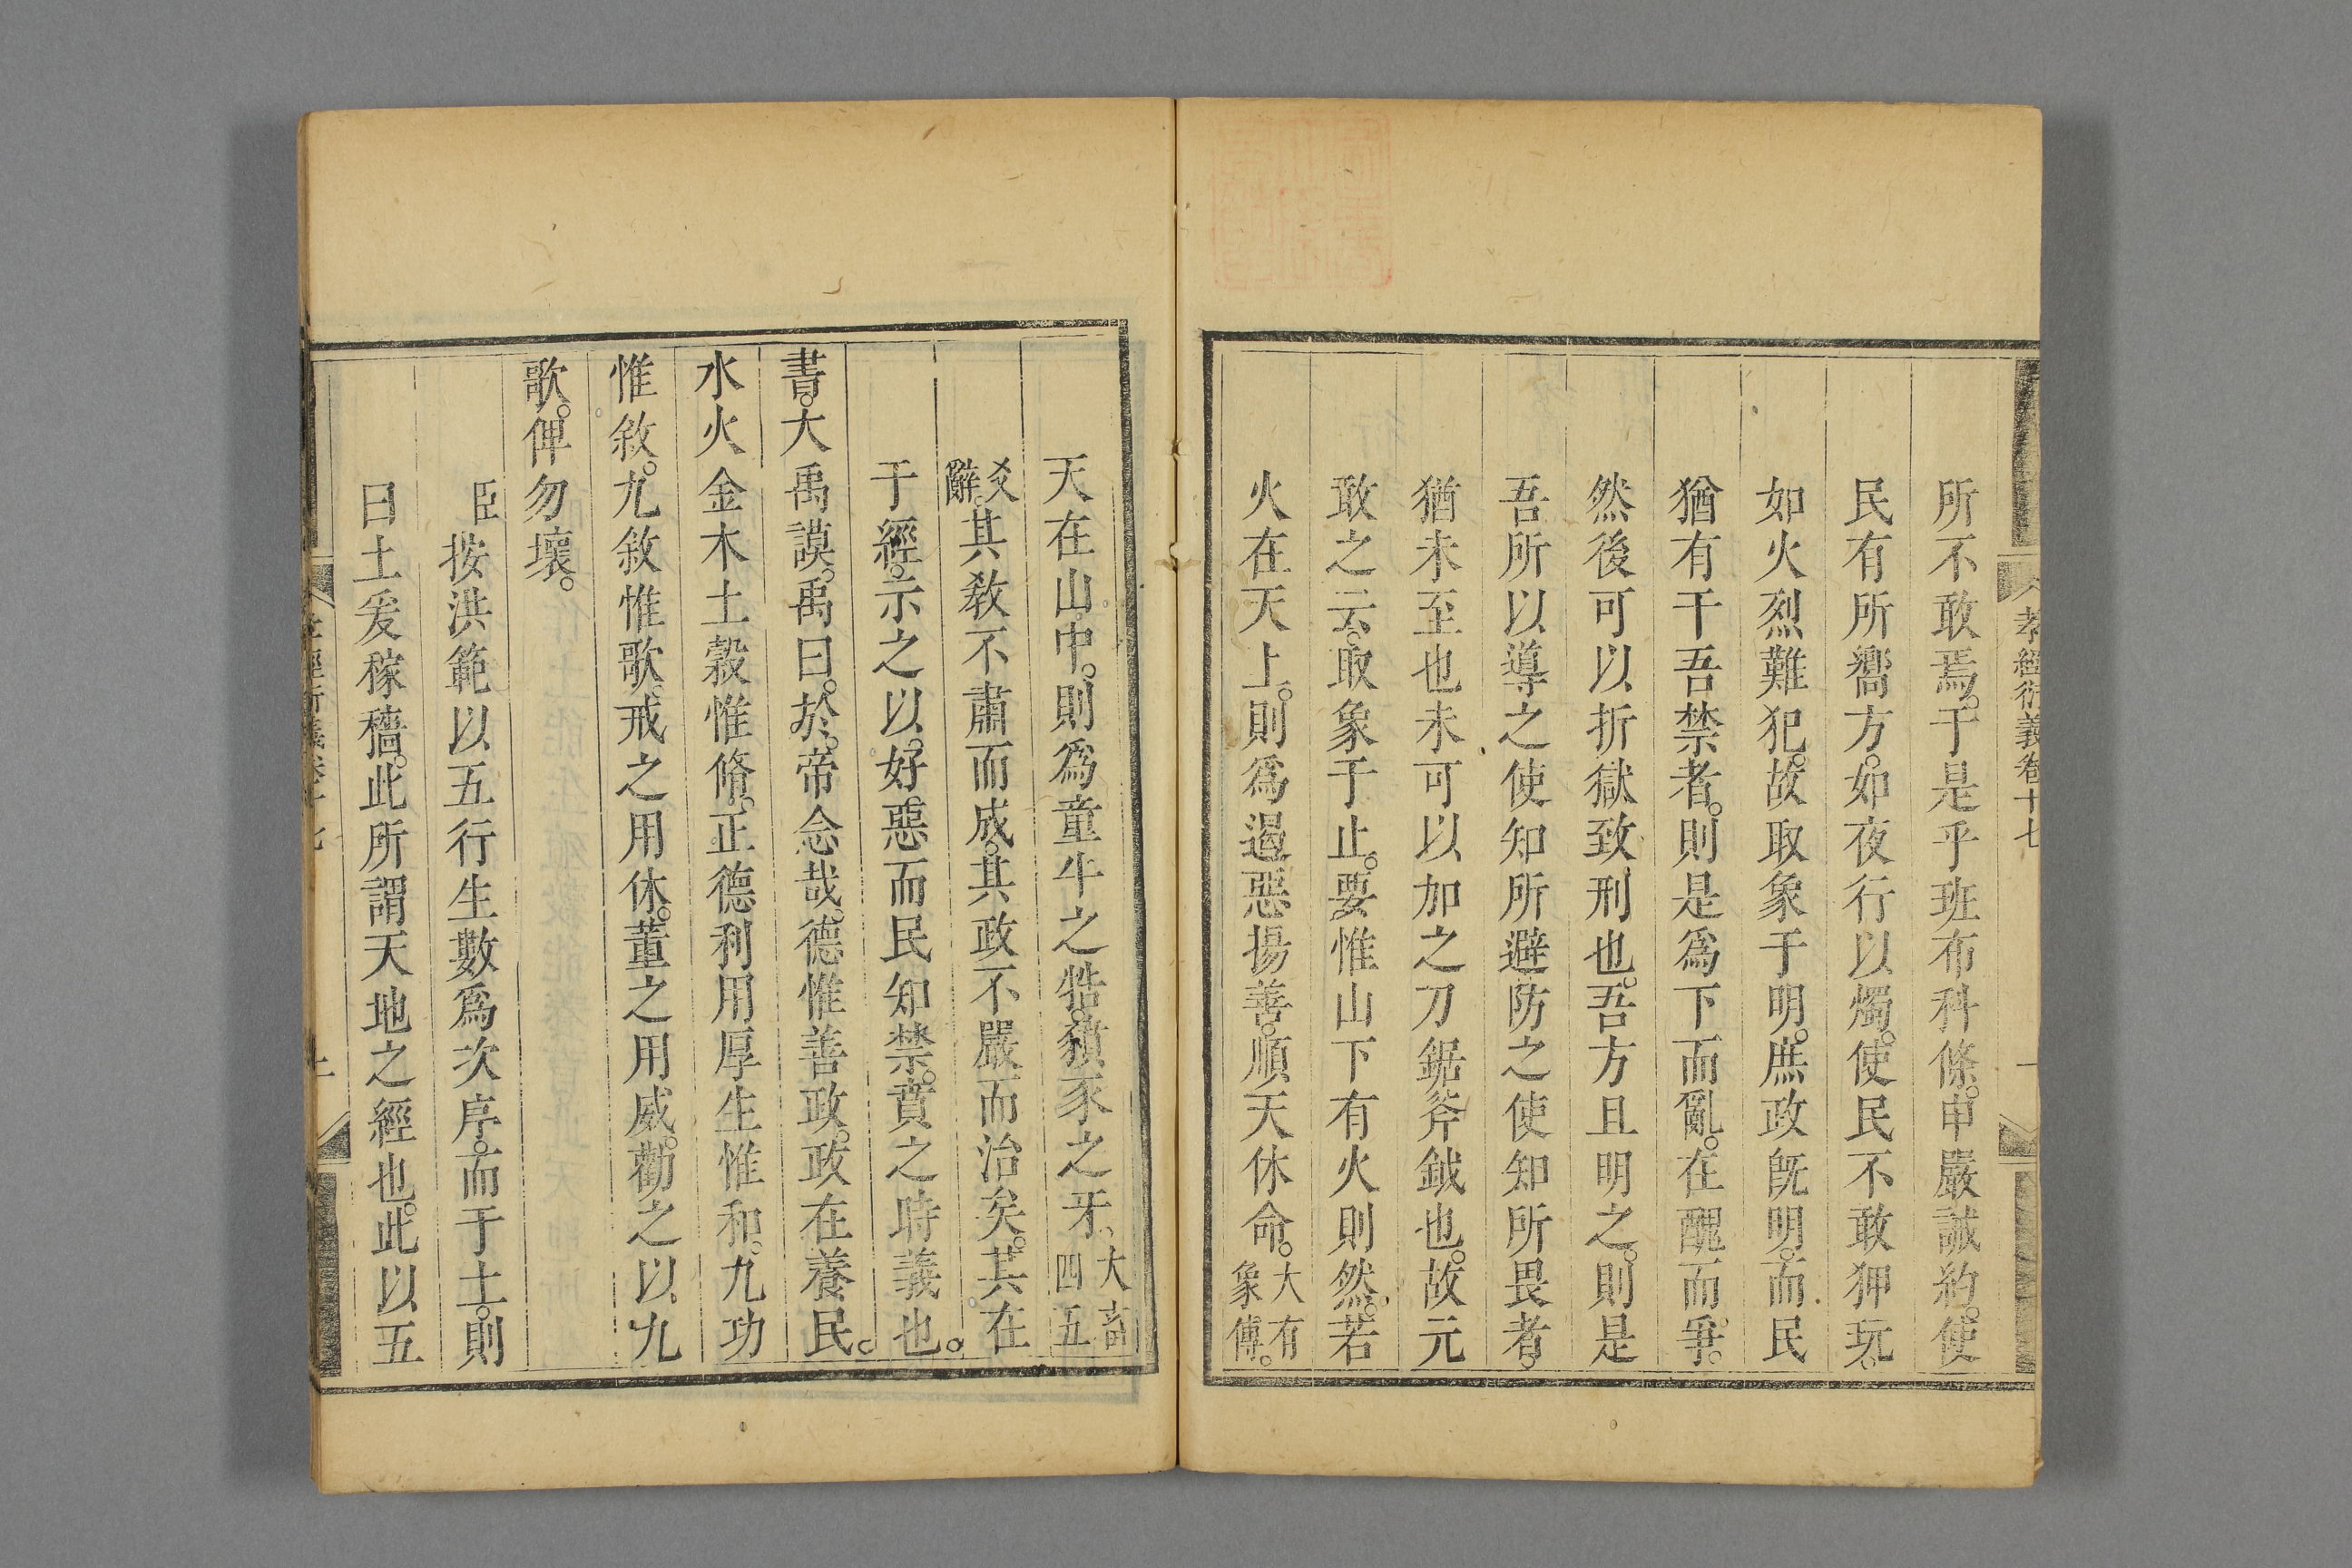 孝經衍義卷十七
所不敢焉。于是乎班布科條。申嚴誡約。使
民有所嚮方。如夜行以燭。使民不敢狎玩。
如火烈難犯。故取象于明。庶政旣明。而民
猶有干吾禁者。則是爲下而亂。在醜而爭。
然後可以折獄致刑也。吾方且明之。則是
吾所以導之使知所避防之使知所畏者。
猶未至也未可以加之刀鋸斧鉞也。故元
敢之云。取象于止。要惟山下有火則然。若
火在天上。則爲遏惡揚善。順天休命。大有
象傳。
天在山中。則爲童牛之牿。豶豕之牙。大畜
四五
爻
辭。其敎不肅而成。其政不嚴而治矣。其在
于經。示之以好惡而民知禁。賁之時義也。
書。大禹謨。禹曰。於。帝念哉。德惟善政。政在養民。
水火金木土穀惟脩。正德利用厚生惟和。九功
惟敘。九敘惟歌。戒之用休。董之用威。勸之以九
歌。俾勿壞。
臣按洪範以五行生數爲次序。而于土。則
曰土爰稼穡。此所謂天地之經也。此以五